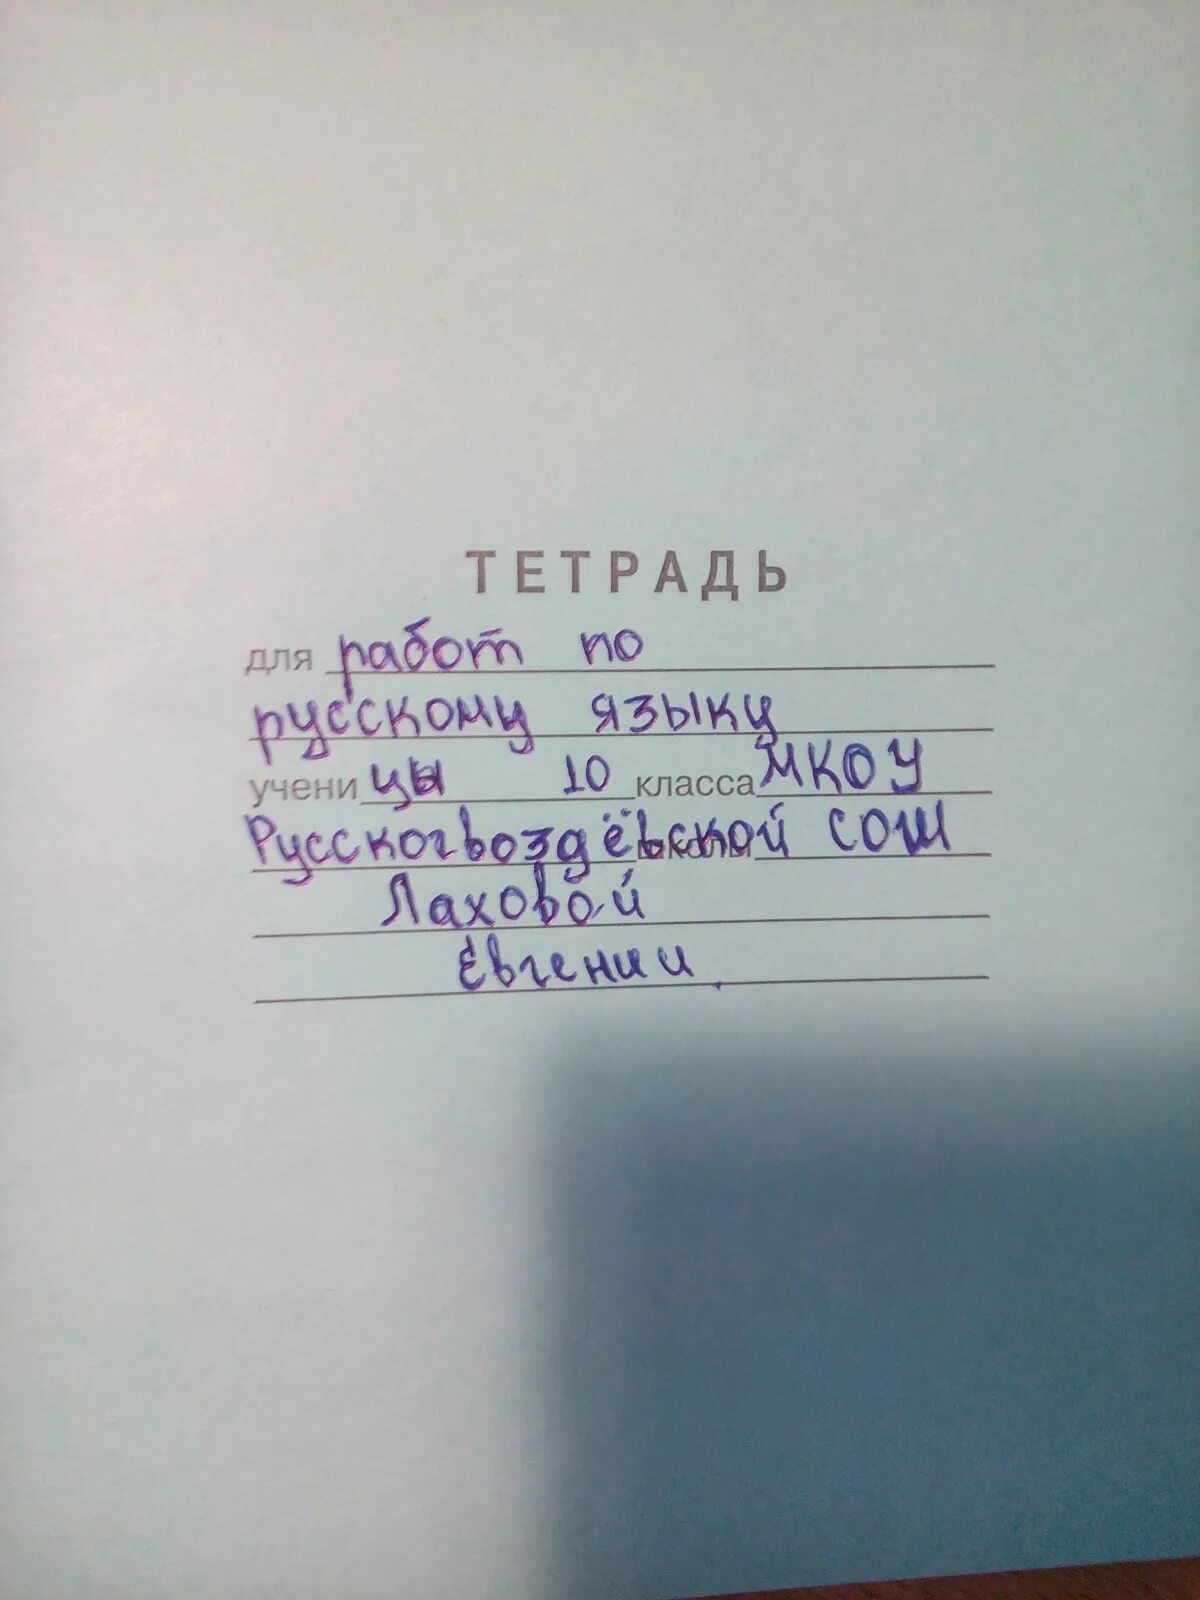 ТЕТРАДЬ
для работ по
русскому языку
ученицы 10 класса МКОУ
Русскогвоздёвской СОШ
Лаховой
Евгении